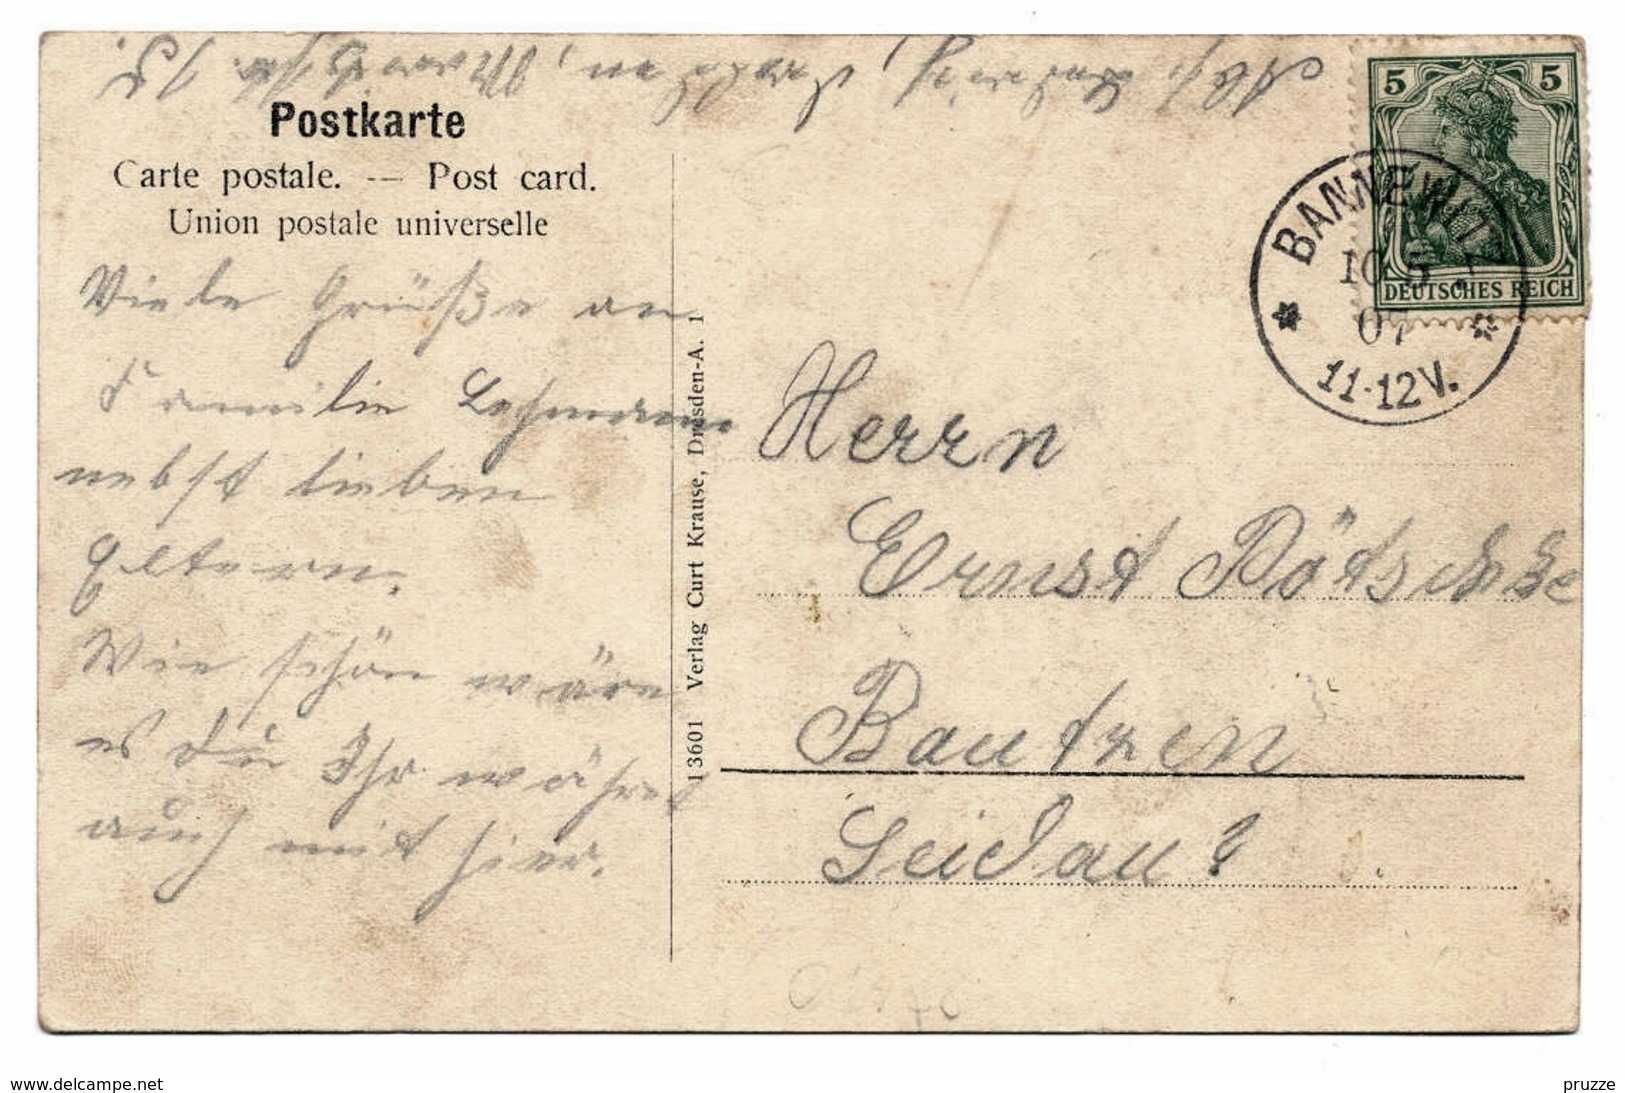 Postkarte
Carte postale. — Post card.
Union postale universelle
Viele Grüße an
Familie Lehmann
nebst lieben
Eltern.
Wie schön wäre
es du Ihr währet
auch mit hier.
13601 Verlag Curt Krause, Dresden-A. 1
5 5
DEUTSCHES REICH
BANNEWITZ
10.5.
07
11-12V.
Herrn
Ernst Pötschke
Bautzen
Seidau
www.delcampe.net
pruzze